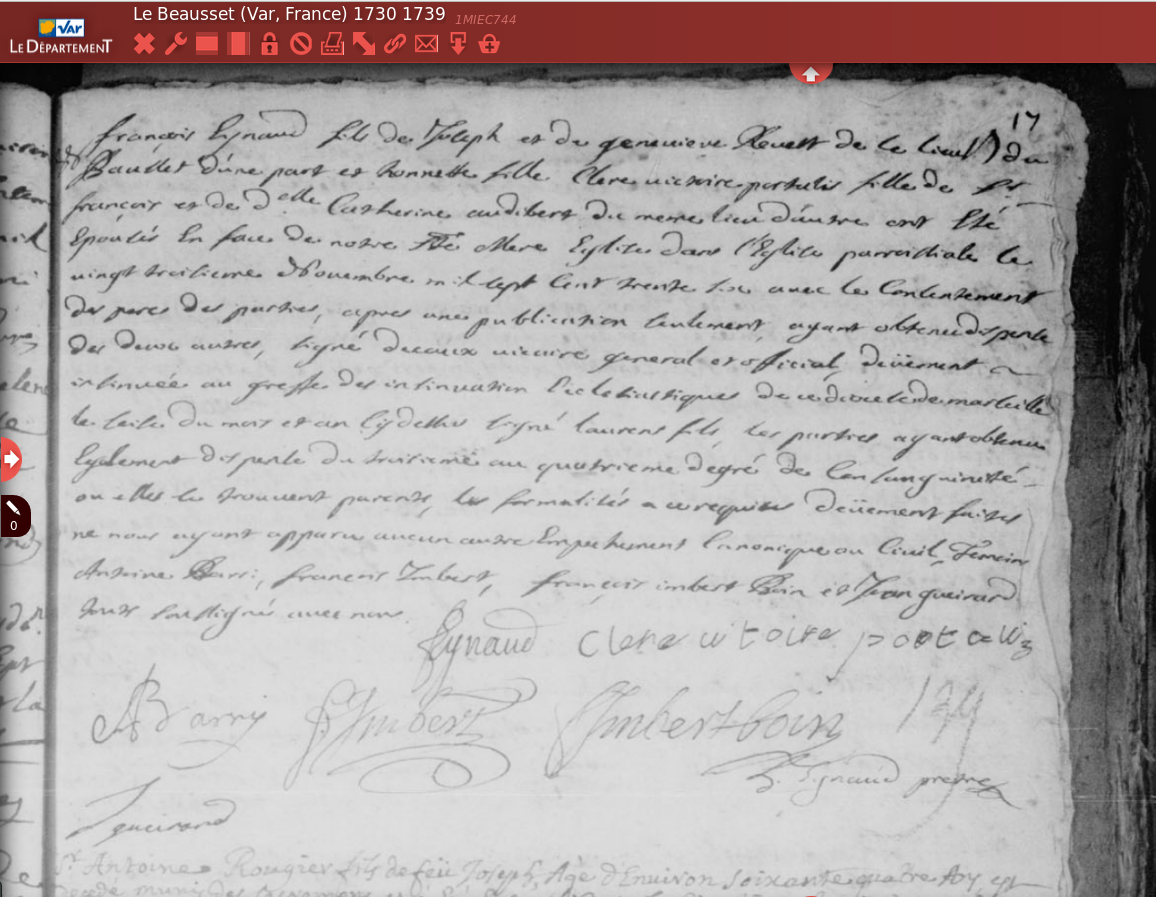 Le Beausset (Var, France) 1730 1739 1MIEC744
VAR
LE DÉPARTEMENT
17
françois Eynaud fils de Joseph et de genevieve Revest de ce lieu du
Bausset d'une part et honnette fille Clere victoire portalis fille de Sr
françois et de delle Catherine audibert du meme lieu d'autre ont Eté
Epousés En face de notre Ste Mere Eglise dans l'Eglise parroissiale le
vingt troisieme Novembre mil sept Cent trente six avec le Consentement
des peres des parties, apres une publication seulement, ayant obtenu dispense
des deux autres, signé decaux vicaire general et official, deüement
insinuée au greffe des insinuation Ecclesiastiques de ce diocese de marseille
le seise du mois et an Cy dessus signé laurens fils, les parties ayant obtenu
Egalement dispense du troisieme au quatrieme degré de Consanguinité
ou elles se trouvent parents, les formalités a ce requises deüement faites
ne nous ayant apparu aucun autre Empechement Canonique ou Civil, Temoin
Antoine Barri, francois Imbert, françois imbert Boin et Jean gueirard
tous soussignés avec nous
Eynaud Clere witoire portalis
A Barry f Imbert Imbert boin
Eynaud pretre
J gueirard
Sr Antoine Rougier fils de feü Joseph, Agé d'Environ soixante quatre Any, est
Decedé muni des sacremens
0